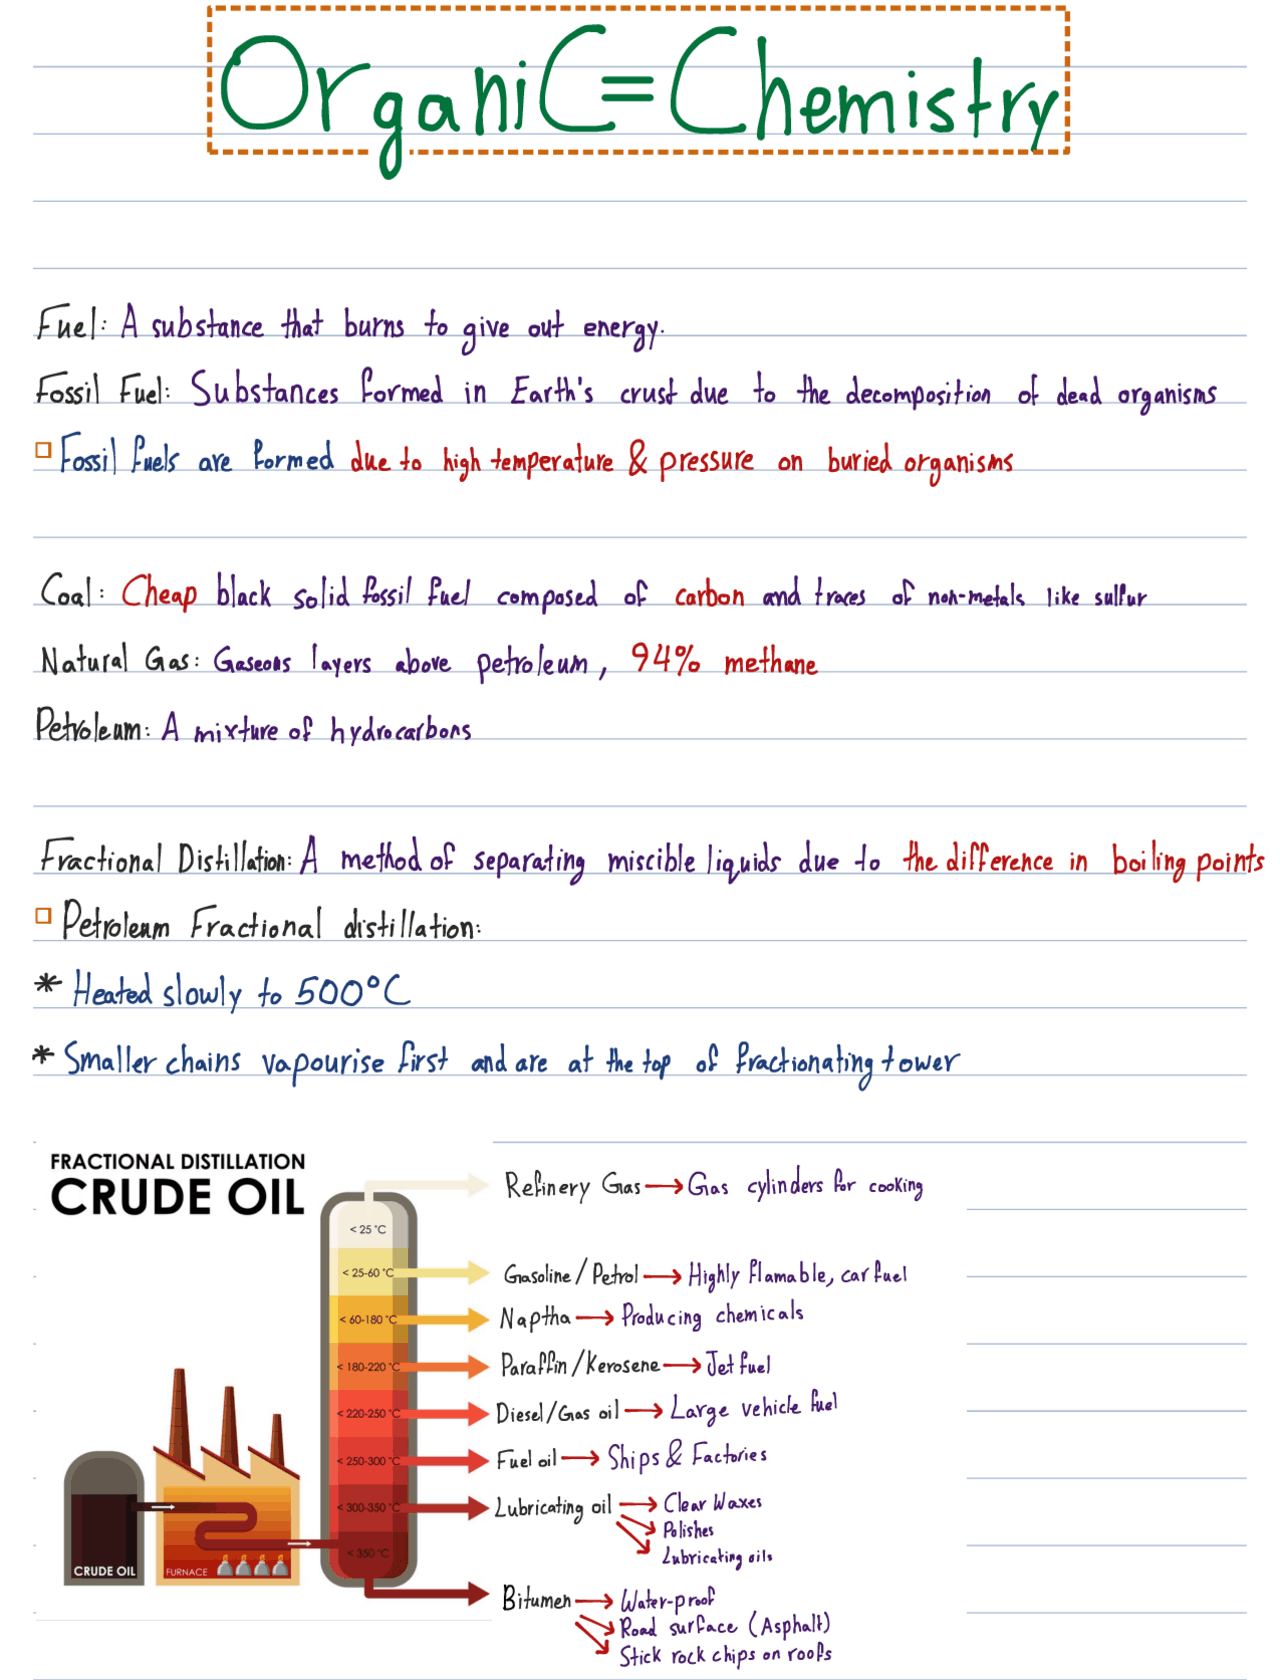 OrganiC=Chemistry
Fuel: A substance that burns to give out energy.
Fossil Fuel: Substances formed in Earth's crust due to the decomposition of dead organisms
Fossil fuels are formed due to high temperature & pressure on buried organisms
Coal: Cheap black solid fossil fuel composed of carbon and traces of non-metals like sulfur
Natural Gas: Gaseous layers above petroleum, 94% methane
Petroleum: A mixture of hydrocarbons
Fractional Distillation: A method of separating miscible liquids due to the difference in boiling points
Petroleum Fractional distillation:
* Heated slowly to 500°C
* Smaller chains vapourise first and are at the top of fractionating tower
FRACTIONAL DISTILLATION
CRUDE OIL
Refinery Gas → Gas cylinders for cooking
< 25 °C
< 25-60 °C
Gasoline/Petrol → Highly flamable, car fuel
< 60-180 °C
Naptha → Producing chemicals
< 180-220 °C
Paraffin/Kerosene → Jet fuel
< 220-250 °C
Diesel/Gas oil → Large vehicle fuel
< 250-300 °C
Fuel oil → Ships & Factories
< 300-350 °C
Lubricating oil → Clear Waxes
Polishes
Lubricating oils
< 350 °C
CRUDE OIL
FURNACE
Bitumen → Water-proof
Road surface (Asphalt)
Stick rock chips on roofs